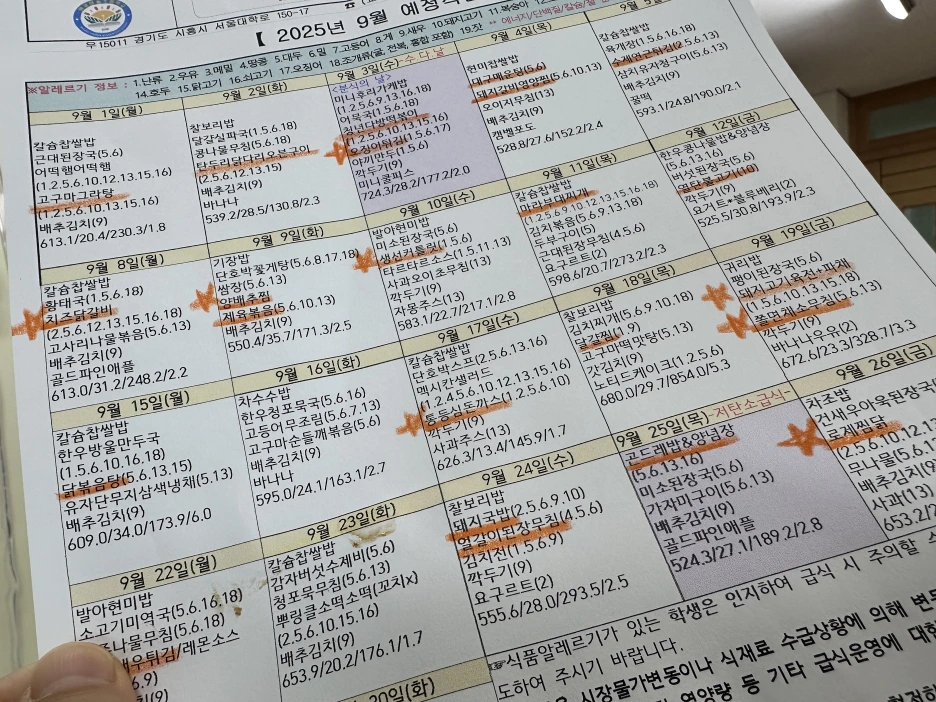 우15011 경기도 시흥시 서울대학로 150-17
【 2025년 9월 예정식
※알레르기 정보 : 1.난류 2.우유 3.메밀 4.땅콩 5.대두 6.밀 7.고등어 8.게 9.새우 10.돼지고기 11.복숭아
14.호두 15.닭고기 16.쇠고기 17.오징어 18.조개류(굴, 전복, 홍합 포함) 19.잣
9월 1일(월)
칼슘찹쌀밥
근대된장국(5.6)
어떡햄어떡햄
(1.2.5.6.10.12.13.15.16)
고구마그라탕
(1.2.5.6.10.13.15.16)
배추김치(9)
613.1/20.4/230.3/1.8
9월 2일(화)
찰보리밥
달갈실파국(1.5.6.18)
콩나물무침(5.6.18)
탄두리닭다리오븐구이
(2.5.6.12.13.15)
배추김치(9)
바나나
539.2/28.5/130.8/2.3
9월 3일(수)-수다날
<분식의 날>
미니후리가케밥
(1.2.5.6.9.13.16.18)
어묵국(1.5.6.18)
청년다방떡볶이
(1.2.5.6.10.13.15.16)
오징어튀김(1.5.6.17)
야끼만두(1.5.6)
깍두기(9)
미니쿨피스
724.3/28.2/177.2/2.0
9월 4일(목)
현미찹쌀밥
대구매운탕(5.6)
돼지갈비영양찜(5.6.10.13)
오이지무침(13)
배추김치(9)
캠벨포도
528.8/27.6/152.2/2.4
칼슘찹쌀밥
육개장(1.5.6.16.18)
삼치유자청구이(5.6.13)
배추김치(9)
꿀떡
593.1/24.8/190.0/2.1
9월 8일(월)
칼슘찹쌀밥
황태국(1.5.6.18)
치즈닭갈비
(2.5.6.12.13.15.16.18)
고사리나물볶음(5.6.13)
배추김치(9)
골드파인애플
613.0/31.2/248.2/2.2
9월 9일(화)
기장밥
단호박꽃게탕(5.6.8.17.18)
쌈장(5.6.13)
양배추찜
제육볶음(5.6.10.13)
배추김치(9)
550.4/35.7/171.3/2.5
9월 10일(수)
발아현미밥
미소된장국(5.6)
생선커틀릿(1.5.6)
타르타르소스(1.5.11.13)
사과오이초무침(13)
깍두기(9)
자몽주스(13)
583.1/22.7/217.1/2.8
9월 11일(목)
칼슘찹쌀밥
(1.2.5.6.9.10.12.13.15.16.18)
김치볶음(5.6.9.13.18)
두부구이(5)
근대된장무침(4.5.6)
요구르트(2)
598.6/20.7/273.2/2.3
9월 12일(금)
한우콩나물밥&양념장
(5.6.13.16)
버섯된장국(5.6)
깍두기(9)
요거트*블루베리(2)
525.5/30.8/193.9/2.3
9월 15일(월)
칼슘찹쌀밥
한우방울만두국
(1.5.6.10.16.18)
닭볶음탕(5.6.13.15)
유자단무지삼색냉채(5.13)
배추김치(9)
609.0/34.0/173.9/6.0
9월 16일(화)
차수수밥
한우청포묵국(5.6.16)
고등어무조림(5.6.7.13)
고구마순들깨볶음(5.6)
배추김치(9)
바나나
595.0/24.1/163.1/2.7
9월 17일(수)
칼슘찹쌀밥
단호박스프(2.5.6.13.16)
멕시칸샐러드
(1.2.4.5.6.10.12.13.15.16)
통등심돈까스(1.2.5.6.10)
깍두기(9)
사과주스(13)
626.3/13.4/145.9/1.7
9월 18일(목)
찰보리밥
김치찌개(5.6.9.10.18)
달걀찜(1.9)
고구마떡맛탕(5.13)
갓김치(9)
노티드케이크(1.2.5.6)
680.0/29.7/854.0/5.3
9월 19일(금)
귀리밥
팽이된장국(5.6)
돼지고기육전+파채
(1.5.6.10.13.15.18)
쫄면채소무침(5.6.13)
깍두기(9)
바나나우유(2)
672.6/23.3/328.7/3.3
9월 22일(월)
발아현미밥
소고기미역국(5.6.16.18)
나물무침(5.6.18)
튀김/레몬소스
9월 23일(화)
칼슘찹쌀밥
감자버섯수제비(5.6)
청포묵무침(5.6.13)
뿌링클소떡소떡(꼬치x)
(2.5.6.10.15.16)
배추김치(9)
653.9/20.2/176.1/1.7
9월 24일(수)
찰보리밥
돼지국밥(2.5.6.9.10)
얼갈이된장무침(4.5.6)
김치전(1.5.6.9)
깍두기(9)
요구르트(2)
555.6/28.0/293.5/2.5
9월 25일(목)-저탄소급식-
곤드레밥&양념장
(5.6.13.16)
미소된장국(5.6)
가자미구이(5.6.13)
배추김치(9)
골드파인애플
524.3/27.1/189.2/2.8
9월 26일(금)
차조밥
로제찜닭
(2.5.6.10.12.13
무나물(5.6.1
배추김치(9)
사과(13)
653.2/2
☞식품알레르기가 있는 학생은 인지하여 급식 시 주의할 수
도하여 주시기 바랍니다.
시장물가변동이나 식재료 수급상황에 의해 변동
영양량 등 기타 급식운영에 대한